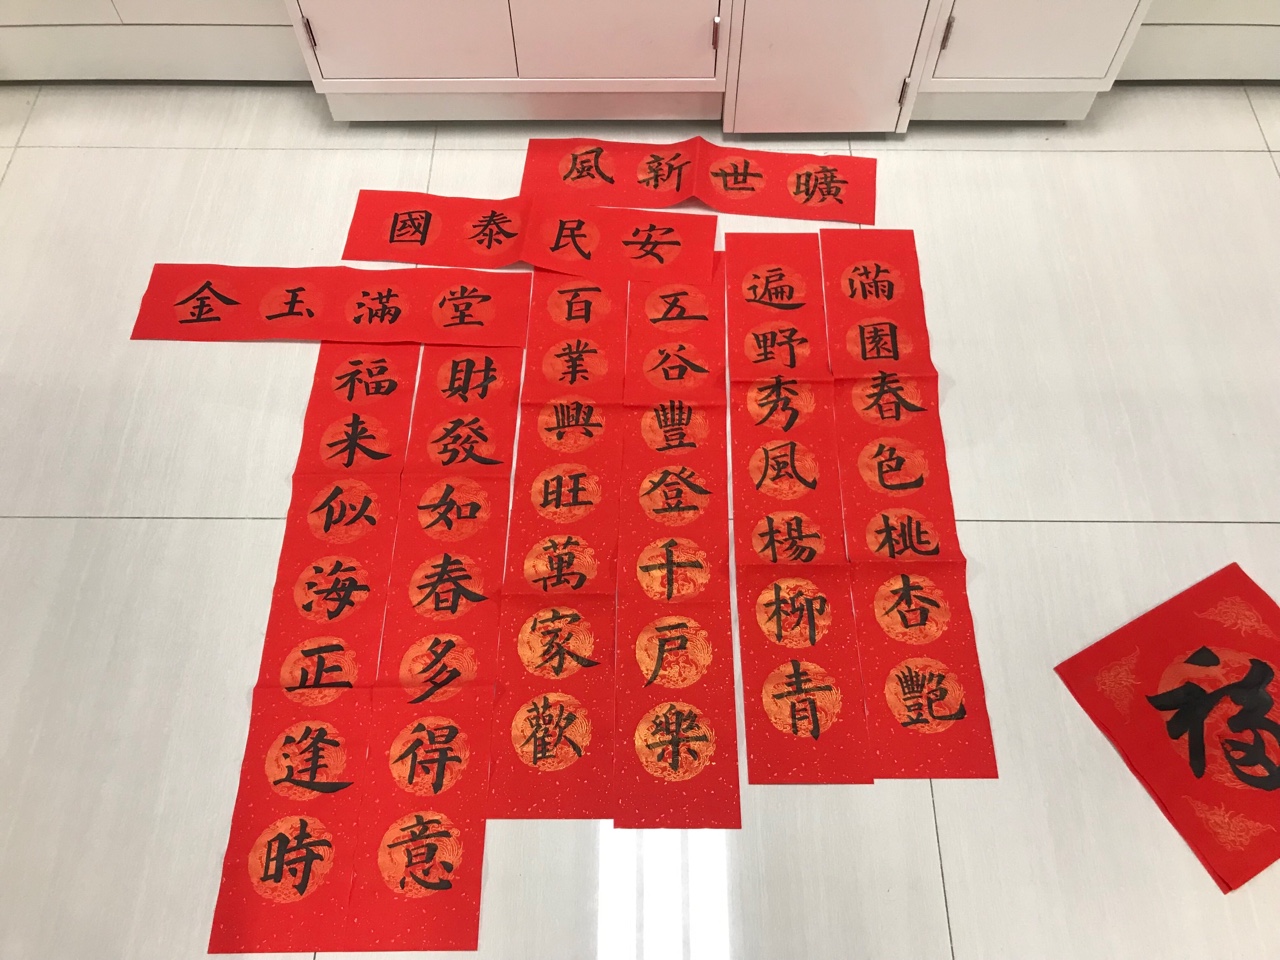 曠世新風
國泰民安
金玉滿堂
滿園春色桃杏艷
遍野秀風楊柳青
五谷豐登千戸樂
百業興旺萬家歡
財發如春多得意
福来似海正逢時
福